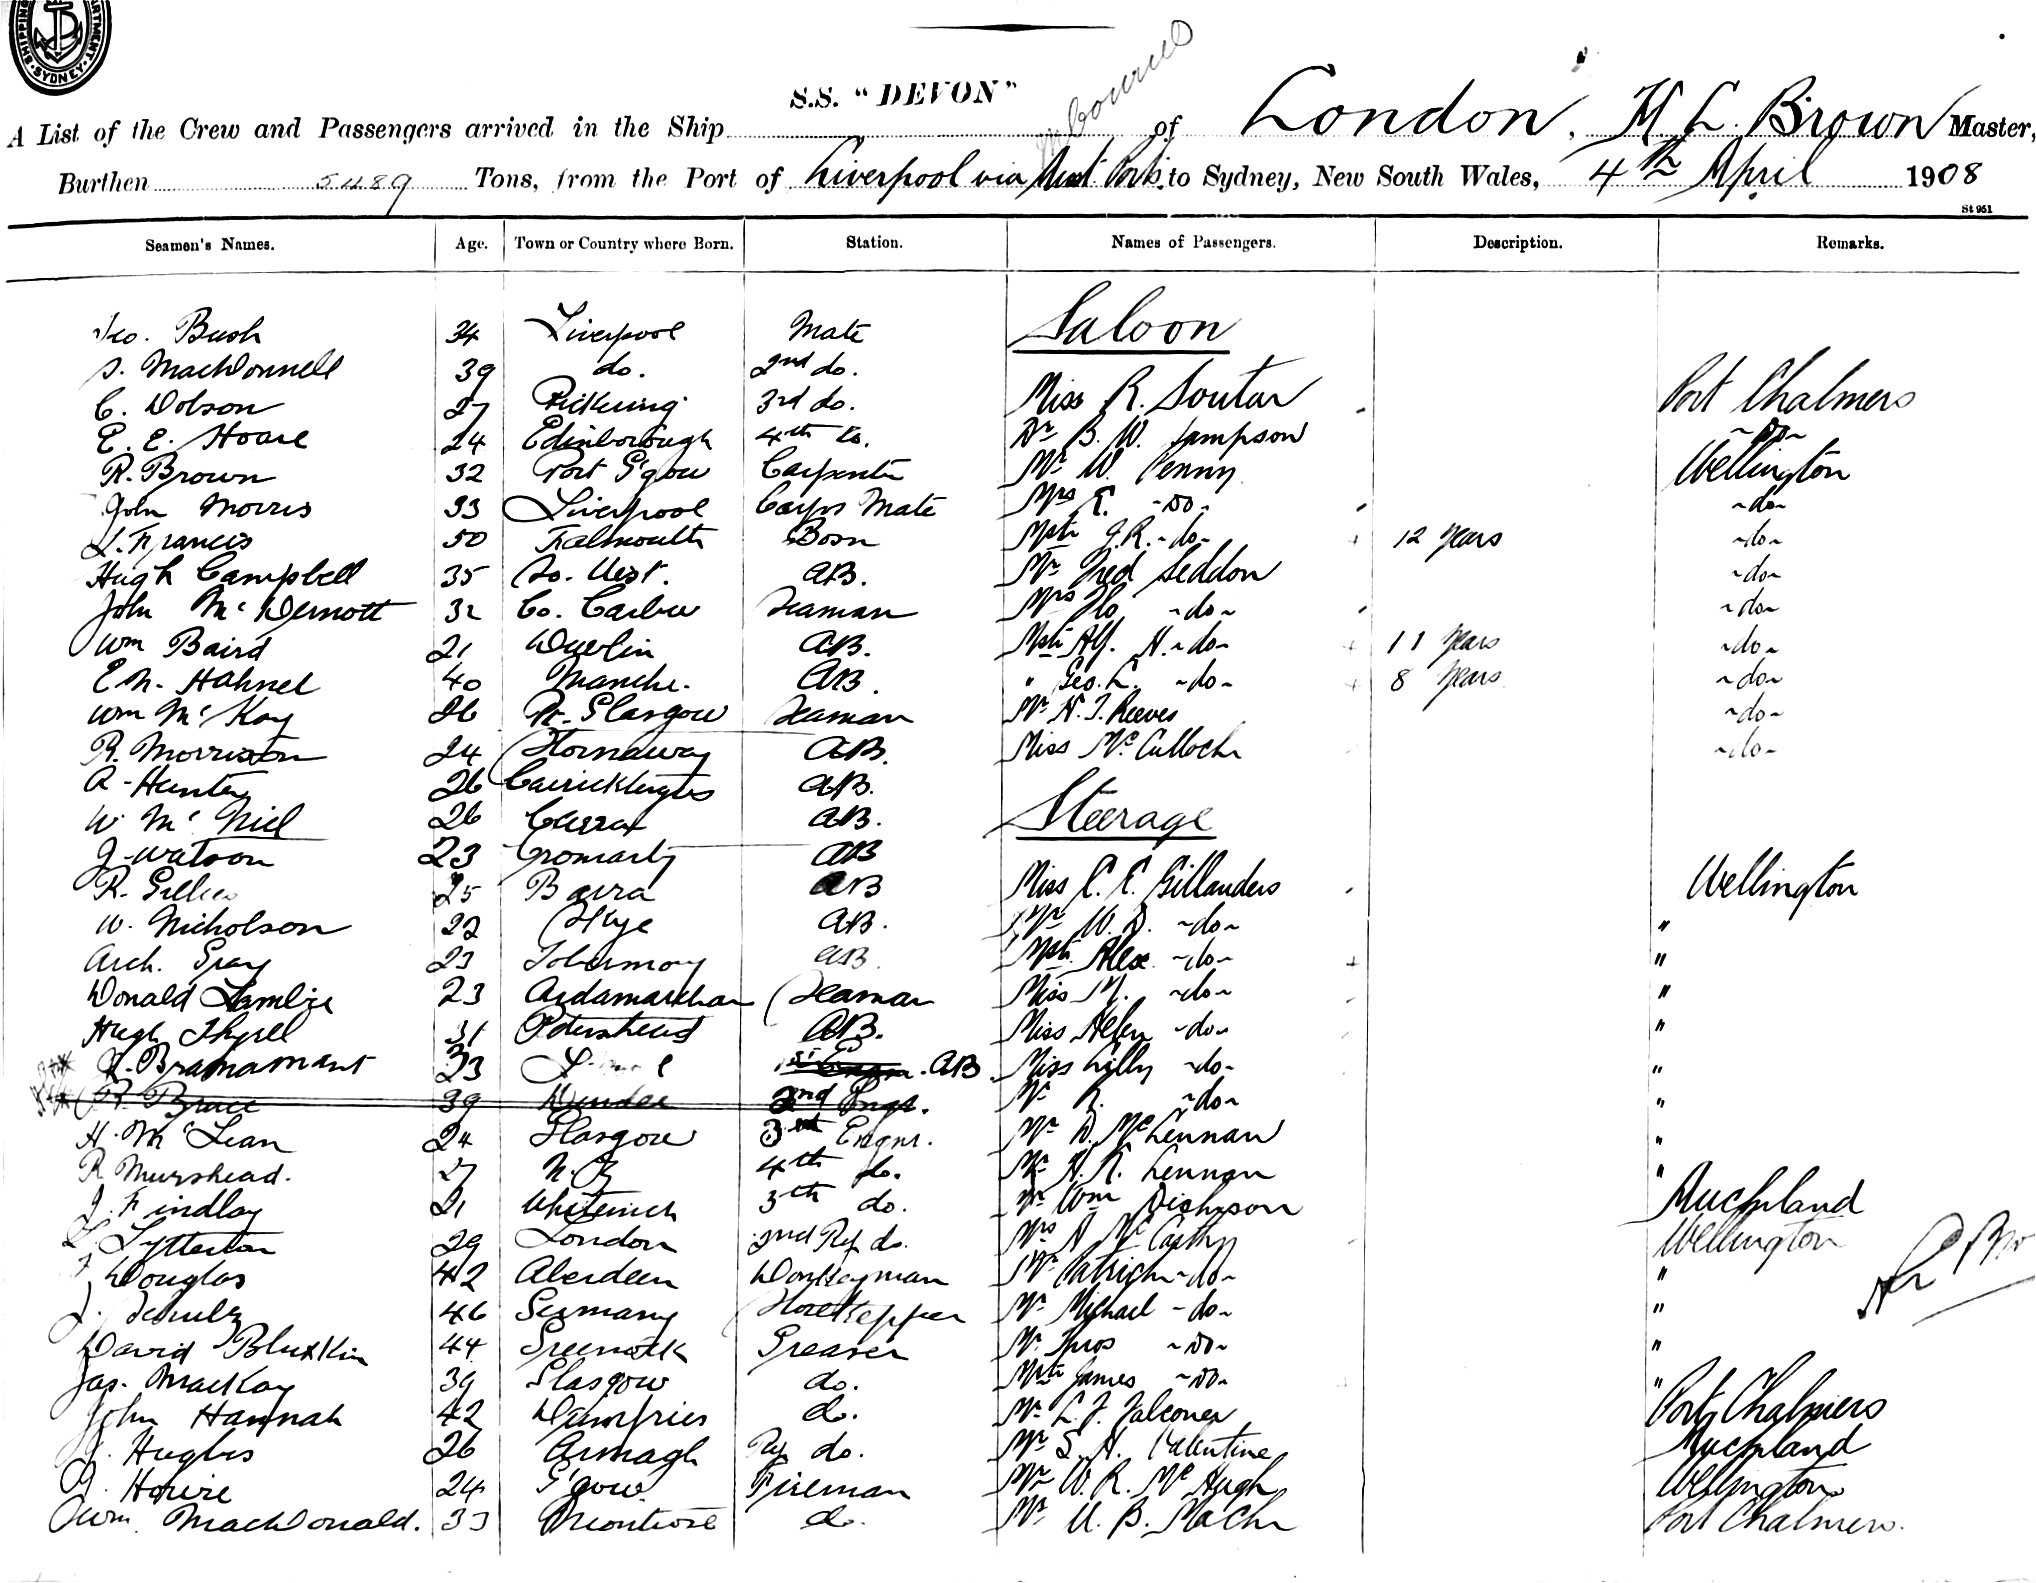 SHIPPING DEPARTMENT. SYDNEY.
S.S. "DEVON"
Melbourne
A List of the Crew and Passengers arrived in the Ship of London, H. L. Brown Master,
Burthen 5489 Tons, from the Port of Liverpool via Ports to Sydney, New South Wales, 4th April 1908
St 951
Seamen's Names. Age. Town or Country where Born. Station. Names of Passengers. Description. Remarks.
Geo. Bush 34 Liverpool Mate Saloon
S. MacDonnell 39 do. 2nd do.
C. Dobson 27 Pickering 3rd do. Miss R. Soutar Port Chalmers
E. E. Hoare 24 Edinborough 4th do. Dr B. W. Sampson -do-
R. Brown 32 Port G'gow Carpenter Mr W. Penny Wellington
John Morris 33 Liverpool Carps Mate Mrs E. -do- -do-
L. Francis 50 Falmouth Bosn Mstr J. R. -do- 12 Years -do-
Hugh Campbell 35 So. Uist. AB. Mr Fred Seddon -do-
John McDermott 32 Co. Seaman Mrs Flo -do- -do-
Wm Baird 21 Dublin AB. Mstr Alf. H. -do- 11 Years -do-
E. M. Hahnel 40 Manche. AB. " Geo. L. -do- 8 Years -do-
Wm McKay 26 Pt. Glasgow Seaman Mr H. J. Reeves -do-
R. Morrison 24 Stornaway AB. Miss McCulloch -do-
A. Hunter 26 AB.
W. McNiel 26 AB. Steerage
J. Watson 23 Cromarty AB
R. Gillies 25 Barra AB Miss C. E. Gillanders Wellington
W. Nicholson 22 Skye AB. Mr W. D. -do- "
Arch. Gray 23 Tobermory AB. Mstr Alex -do- "
Donald 23 Seaman Miss M. -do- "
Hugh 31 Petershead AB. Miss Helen -do- "
Bramamant 33 AB Miss Lilly -do- "
R. Bruce 39 Dundee 2nd Engr. Mr R. -do- "
H. McLean 24 Glasgow 3rd Engnr. Mr D. McLennan "
R. Muirshead. 27 N.Z 4th do. Mr H. K. Lennon "
J. Findlay 21 Whiteinch 5th do. Mr Wm Dickson Auckland
Lyttleton 29 London 2nd Ref do. Mrs A McCarthy Wellington
Douglas 42 Aberdeen Donkeyman Mr Patrick -do- "
J. Schulz 46 Germany Storekeeper Mr Michael -do- "
David Bluxkin 44 Greenock Greaser Mr -do- "
Jas. MacKay 39 Glasgow do. Mstr James -do- "
John Hannah 42 Dumfries do. Mr L. J. Falconer Port Chalmers
J. Hughes 26 Armagh do. Mr S. H. Valentine Auckland
Howie 24 G'gow Fireman Mr W. R. McHugh Wellington
Wm MacDonald. 33 Montrose do. Mr U. B. Port Chalmers.